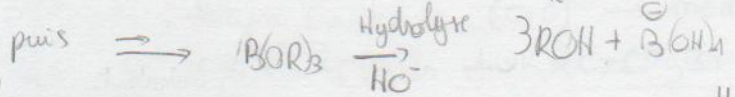 puis ⇒ → B(OR)3 Hydrolyse → HO⁻ 3ROH + B⊖(OH)4